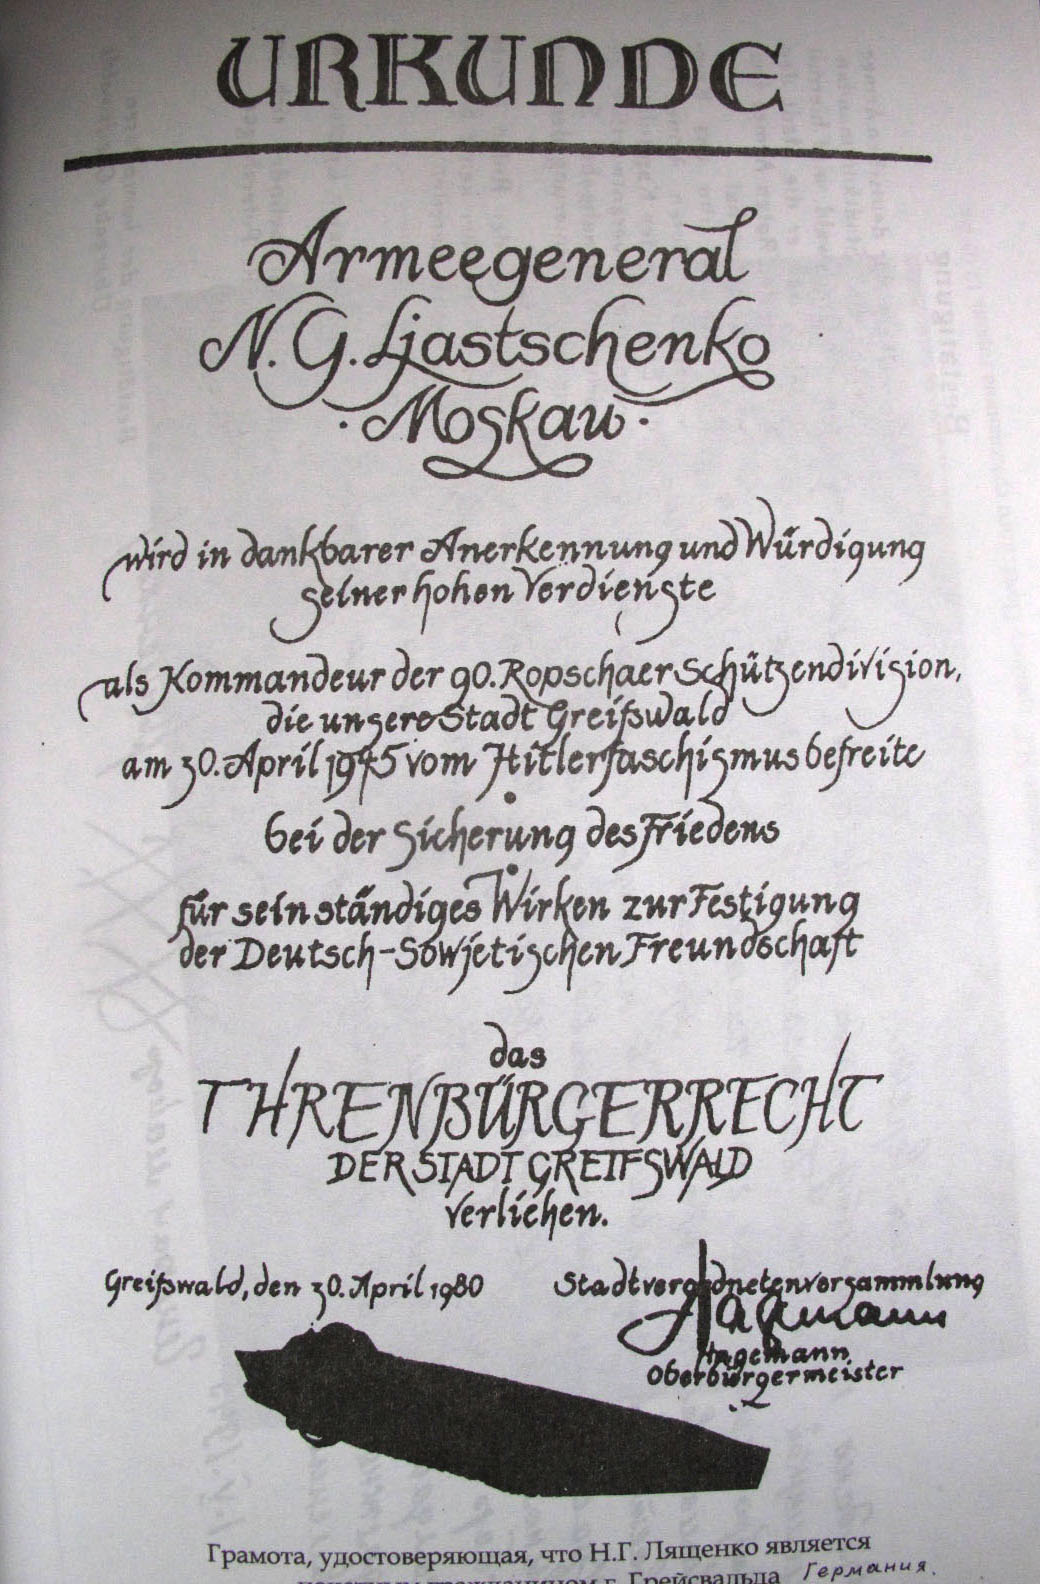 URKUNDE
Armeegeneral
N. G. Ljastschenko
· Moskau ·
wird in dankbarer Anerkennung und Würdigung
seiner hohen Verdienste
als Kommandeur der 90. Ropschaer Schützendivision,
die unsere Stadt Greifswald
am 30. April 1945 vom Hitlerfaschismus befreite
bei der Sicherung des Friedens
für sein ständiges Wirken zur Festigung
der Deutsch-Sowjetischen Freundschaft
das
EHRENBÜRGERRECHT
DER STADT GREIFSWALD
verliehen.
Greifswald, den 30. April 1980
Stadtverordnetenversammlung
Hagemann
Hagemann
Oberbürgermeister
Грамота, удостоверяющая, что Н.Г. Лященко является
почетным гражданином г. Грейсвальда Германия.